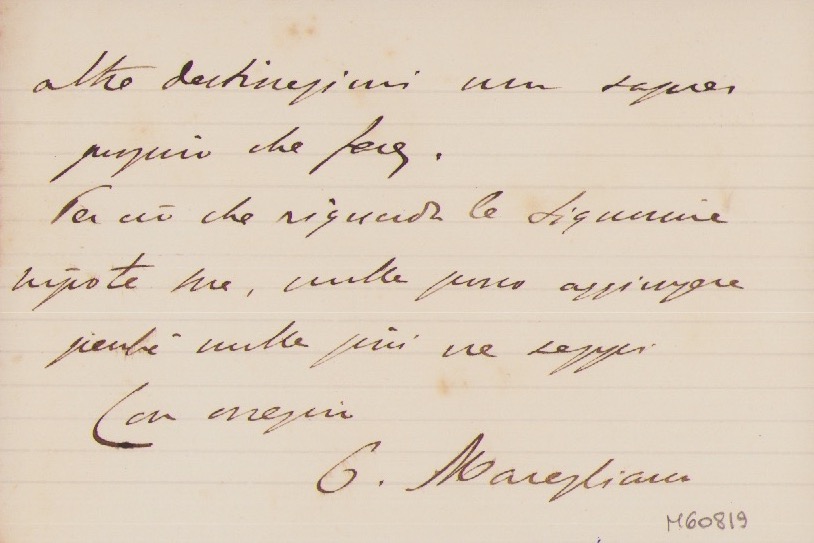 altre destinazioni non saprei
proprio che fare.
Per ciò che riguarda la Signorina
nipote sua, nulla posso aggiungere
perchè nulla più ne seppi
Con ossequio
M60819